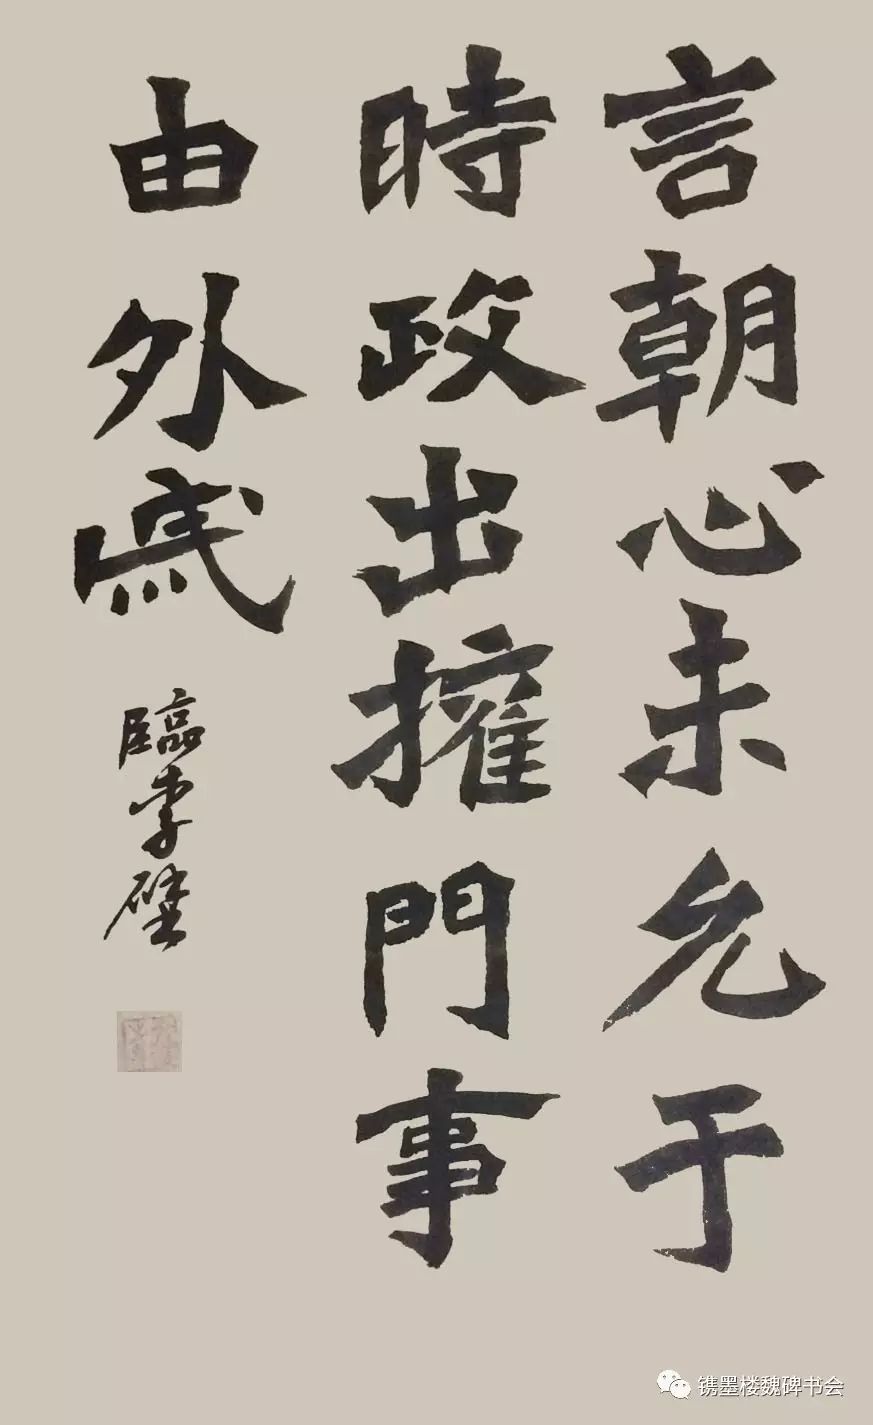 言朝心未允于
時政出攉門事
由外戚
臨李璧
镌墨楼魏碑书会